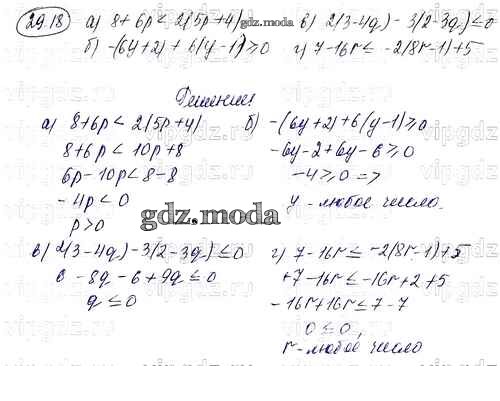 29.18 а) 8+6p < 2(5p+4) в) 2(3-4q)-3(2-3q) ≤ 0
б) -(6y+2)+6(y-1) ≥ 0 г) 7-16r ≤ -2(8r-1)+5
Решение:
а) 8+6p < 2(5p+4) б) -(6y+2)+6(y-1) ≥ 0
8+6p < 10p+8 -6y-2+6y-6 ≥ 0
6p-10p < 8-8 -4 ≥ 0 =>
-4p < 0 y - любое число.
p > 0
gdz.moda
в) 2(3-4q)-3(2-3q) ≤ 0 г) 7-16r ≤ -2(8r-1)+5
6-8q-6+9q ≤ 0 +7-16r ≤ -16r+2+5
q ≤ 0 -16r+16r ≤ 7-7
0 ≤ 0,
r - любое число
gdz.moda